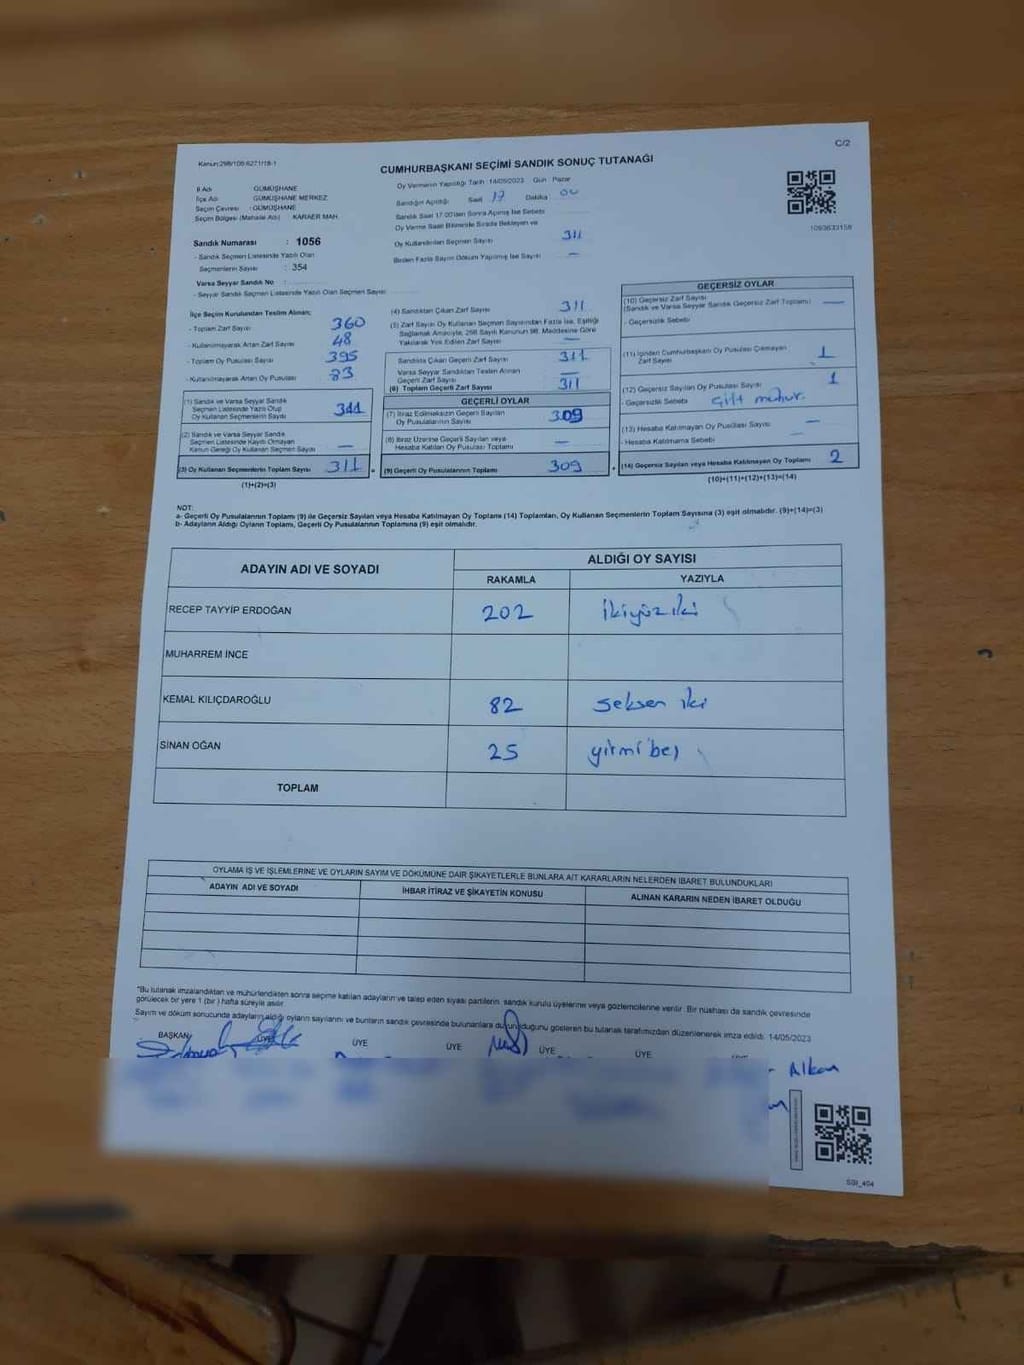 Kanun:298/105-6271/18-1
C/2
CUMHURBAŞKANI SEÇİMİ SANDIK SONUÇ TUTANAĞI
İl Adı GÜMÜŞHANE
İlçe Adı GÜMÜŞHANE MERKEZ
Seçim Çevresi : GÜMÜŞHANE
Seçim Bölgesi (Mahalle Adı) KARAER MAH.
Sandık Numarası : 1056
- Sandık Seçmen Listesinde Yazılı Olan
Seçmenlerin Sayısı : 354
Varsa Seyyar Sandık No :
- Seyyar Sandık Seçmen Listesinde Yazılı Olan Seçmen Sayısı
Oy Vermenin Yapıldığı Tarih : 14/05/2023 Gün : Pazar
Sandığın Açıldığı Saat 17 Dakika 00
Sandık Saat 17:00'den Sonra Açılmış İse Sebebi
Oy Verme Saati Bitiminde Sırada Bekleyen ve
Oy Kullandırılan Seçmen Sayısı 311
Birden Fazla Sayım Döküm Yapılmış İse Sayısı —
1093633158
İlçe Seçim Kurulundan Teslim Alınan;
- Toplam Zarf Sayısı 360
- Kullanılmayarak Artan Zarf Sayısı 48
- Toplam Oy Pusulası Sayısı 395
- Kullanılmayarak Artan Oy Pusulası 83
(1) Sandık ve Varsa Seyyar Sandık
Seçmen Listesinde Yazılı Olup
Oy Kullanan Seçmenlerin Sayısı 311
(2) Sandık ve Varsa Seyyar Sandık
Seçmen Listesinde Kayıtlı Olmayan
Kanun Gereği Oy Kullanan Seçmen Sayısı —
(3) Oy Kullanan Seçmenlerin Toplam Sayısı 311 =
(1)+(2)=(3)
(4) Sandıktan Çıkan Zarf Sayısı 311
(5) Zarf Sayısı Oy Kullanan Seçmen Sayısından Fazla İse, Eşitliği
Sağlamak Amacıyla, 298 Sayılı Kanunun 98. Maddesine Göre
Yakılarak Yok Edilen Zarf Sayısı —
Sandıkta Çıkan Geçerli Zarf Sayısı 311
Varsa Seyyar Sandıktan Teslim Alınan
Geçerli Zarf Sayısı —
(6) Toplam Geçerli Zarf Sayısı 311
GEÇERLİ OYLAR
(7) İtiraz Edilmeksizin Geçerli Sayılan
Oy Pusulasının Sayısı 309
(8) İtiraz Üzerine Geçerli Sayılan veya
Hesaba Katılan Oy Pusulası Toplamı —
(9) Geçerli Oy Pusulalarının Toplamı 309 +
GEÇERSİZ OYLAR
(10) Geçersiz Zarf Sayısı
(Sandık ve Varsa Seyyar Sandık Geçersiz Zarf Toplamı) —
- Geçersizlik Sebebi
(11) İçinden Cumhurbaşkanı Oy Pusulası Çıkmayan
Zarf Sayısı 1
(12) Geçersiz Sayılan Oy Pusulası Sayısı 1
- Geçersizlik Sebebi Çift mühür.
(13) Hesaba Katılmayan Oy Pusulası Sayısı —
- Hesaba Katılmama Sebebi
(14) Geçersiz Sayılan veya Hesaba Katılmayan Oy Toplamı 2
(10)+(11)+(12)+(13)=(14)
NOT:
a- Geçerli Oy Pusulalarının Toplamı (9) ile Geçersiz Sayılan veya Hesaba Katılmayan Oy Toplamı (14) Toplamları, Oy Kullanan Seçmenlerin Toplam Sayısına (3) eşit olmalıdır. (9)+(14)=(3)
b- Adayların Aldığı Oyların Toplamı, Geçerli Oy Pusulalarının Toplamına (9) eşit olmalıdır.
ADAYIN ADI VE SOYADI
ALDIĞI OY SAYISI
RAKAMLA YAZIYLA
RECEP TAYYİP ERDOĞAN 202 ikiyüziki
MUHARREM İNCE
KEMAL KILIÇDAROĞLU 82 seksen iki
SİNAN OĞAN 25 yirmi beş
TOPLAM
OYLAMA İŞ VE İŞLEMLERİNE VE OYLARIN SAYIM VE DÖKÜMÜNE DAİR ŞİKAYETLERLE BUNLARA AİT KARARLARIN NELERDEN İBARET BULUNDUKLARI
ADAYIN ADI VE SOYADI İHBAR İTİRAZ VE ŞİKAYETİN KONUSU ALINAN KARARIN NEDEN İBARET OLDUĞU
*Bu tutanak imzalandıktan ve mühürlendikten sonra seçime katılan adayların ve talep eden siyasi partilerin, sandık kurulu üyelerine veya gözlemcilerine verilir. Bir nüshası da sandık çevresinde
görülecek bir yere 1 (bir) hafta süreyle asılır.
Sayım ve döküm sonucunda adayların aldığı oyların sayılarını ve bunların sandık çevresinde bulunanlara duyurulduğunu gösteren bu tutanak tarafımızdan düzenlenerek imza edildi. 14/05/2023
BAŞKAN ÜYE ÜYE ÜYE ÜYE ÜYE
Alkan
SGI_404